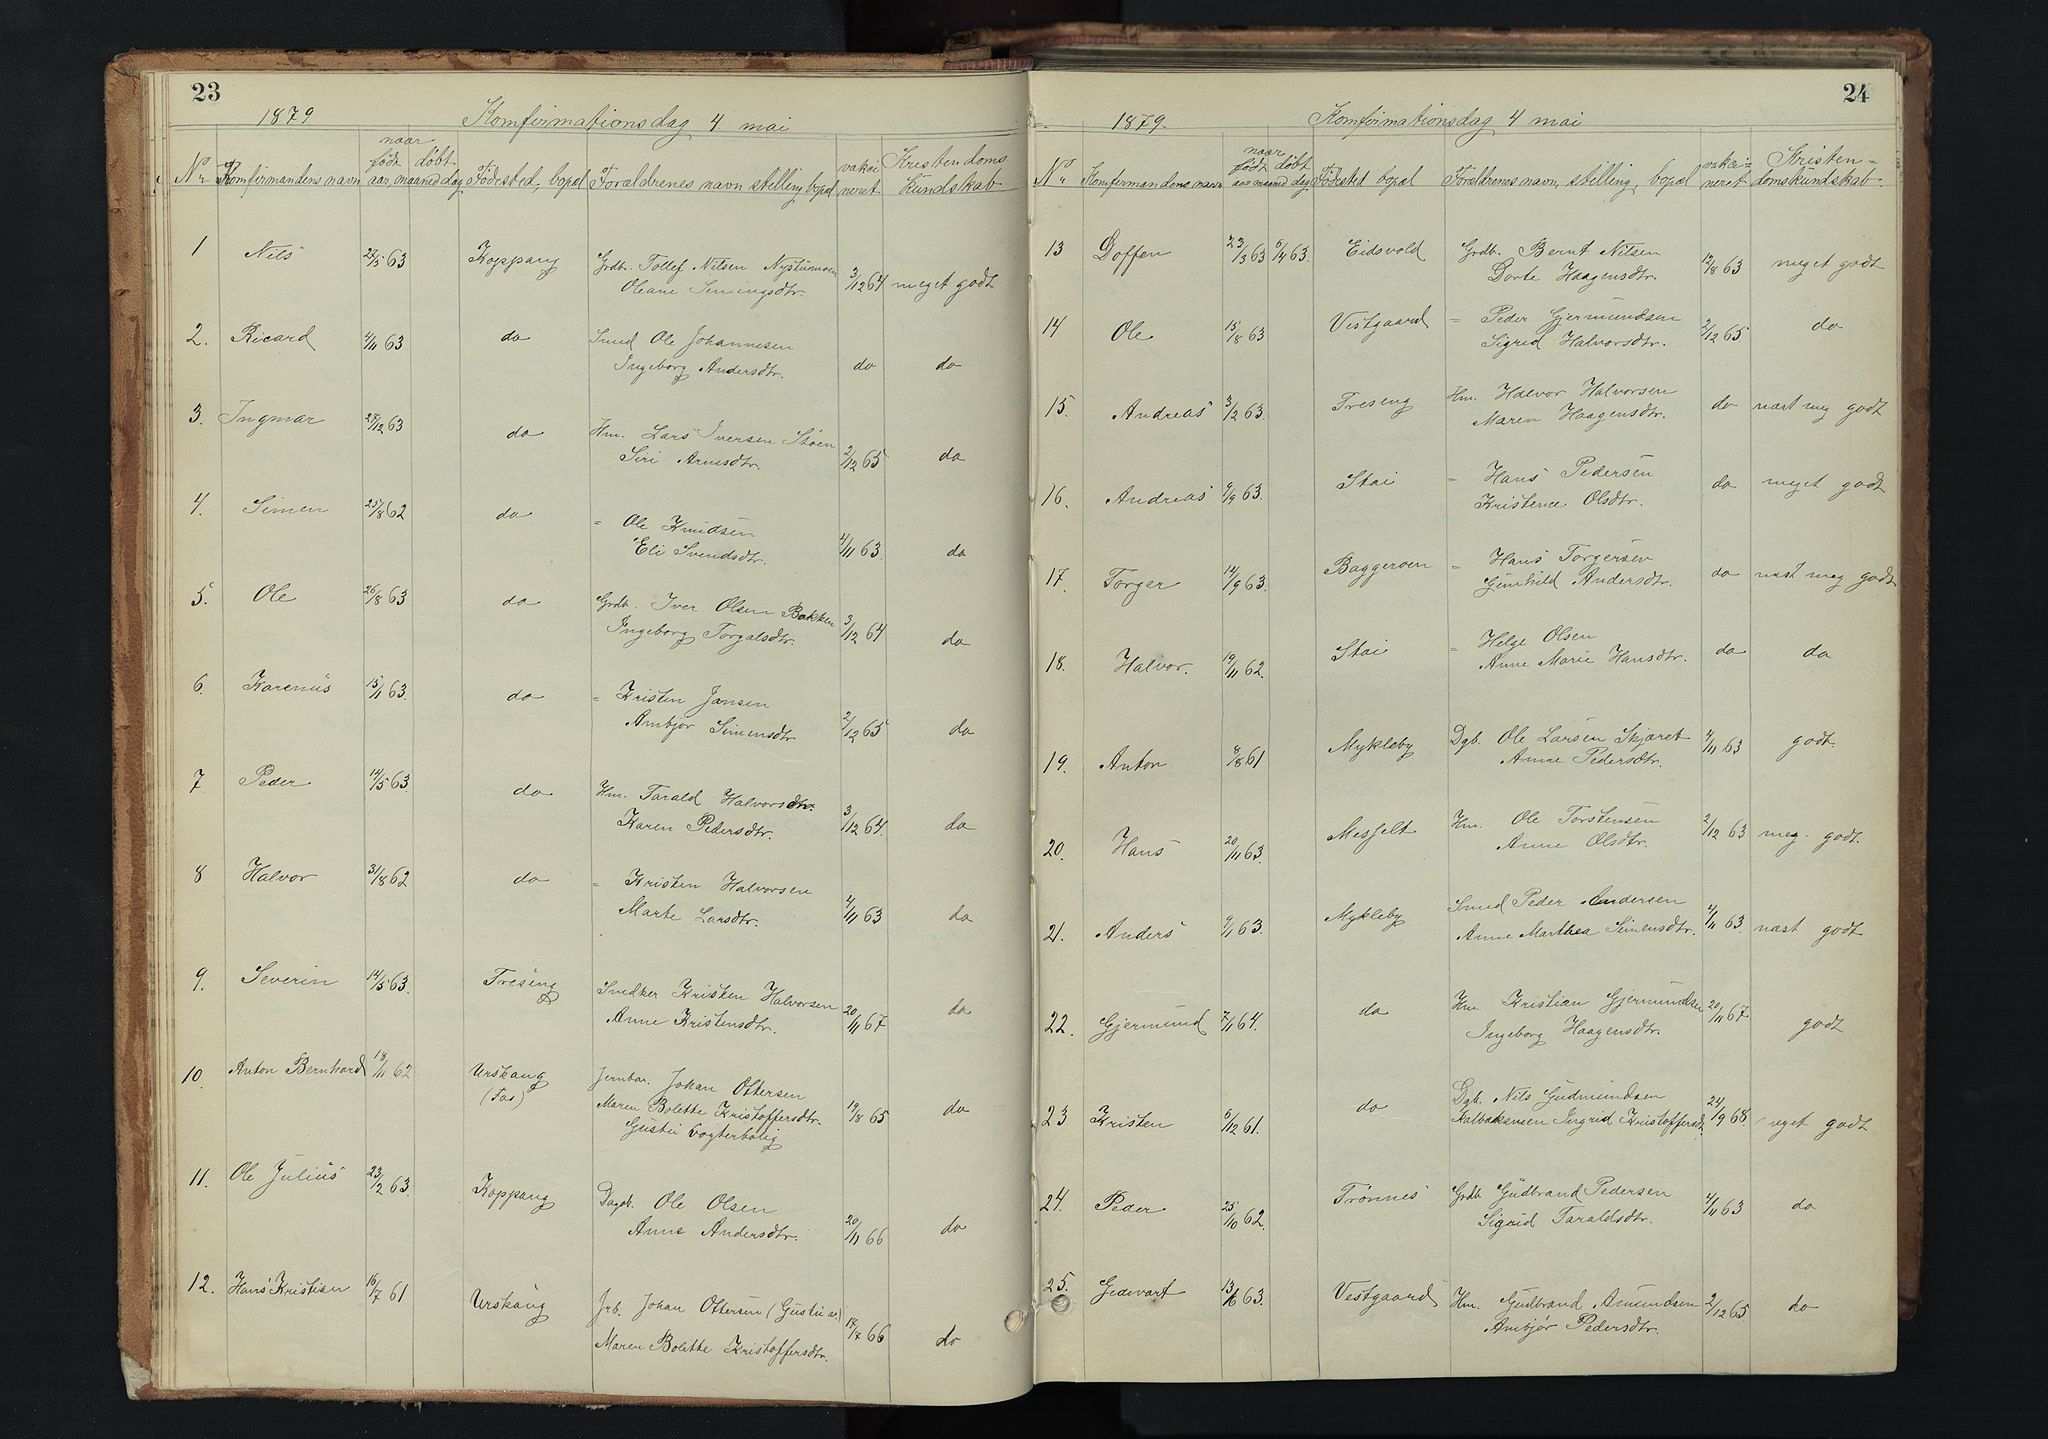 23
1879 Komfirmationsdag 4. mai
naar
No Komfirmandens navn født døbt aar, maaned dag Fødested, bopæl Forældrenes navn stilling bopæl vaksineret Kristendoms Kundskab
1 Nils 27/5 63 Koppang Grdb. Tollef Nilsen Nystumoen 3/12 64 meget godt
Oleane Simingsdtr.
2. Ricard 4/11 63 do Smed Ole Johannesen
Ingeborg Andersdtr. do do
3. Ingmar 27/12 63 do Hm. Lars Iversen Støen 2/12 65 do
Siri Arnesdtr.
4. Simen 25/8 62 do " Ole Knudsen 4/11 63. do
Eli Svendsdtr.
5. Ole 26/8 63 do Grdb. Iver Olsen Bakken 3/12 64 do
Ingeborg Torgalsdtr.
6. Karenus 15/11 63. do " Kristen Jansen 2/12 65 do
Ambjør Simensdtr
7 Peder 14/5 63 do Hm. Tarald Halvorsdtr. 3/12 64. do
Karen Pedersdtr.
8 Halvor 31/8 62 do " Kristen Halvorsen 4/11 63 do
Marte Larsdtr.
9. Severin 14/5 63. Treseng Snedker Kristen Halvorsen 20/11 67 do
Anne Kristensdtr.
10. Anton Bernhard 18/11 62 Urskaug Jernbar. Johan Ottersen
(Fos) Maren Bolette Kristoffersdtr. 19/8 65 do
Gustu Vogterbolig
11. Ole Julius 23/2 63. Koppang Dagb. Ole Olsen 20/11 66 do
Anne Andersdtr.
12. Hans Kristian 16/7 61 Urskaug Jrb. Johan Ottersen (Gustu v.) 17/7 66 do
Maren Bolette Kristoffersdtr.
24
1879. Komfirmationsdag 4 mai
naar
No Komfirmandens navn født døbt aar maaned dag Fødested bopæl Forældrenes navn, stilling, bopæl vaksineret Kristendomskundskab.
13 Doffen 23/3 63 5/4 63. Eidsvold Grdb. Bernt Nilsen 12/8 63 meget godt
Dorte Haagensdtr.
14 Ole 15/8 63 Vestgaard " Peder Gjermundsen 2/12 65 do
Sigrid Halvorsdtr.
15. Andreas 3/2 63. Treseng Hm. Halvor Halvorsen do næst meg godt
Maren Haagensdtr.
16. Andreas 9/9 63. Stai " Hans Pedersen do meget godt
Kristence Olsdtr.
17. Torger 14/9 63. Baggeroen " Hans Torgersen do næst meg godt
Gunhild Andersdtr.
18. Halvor. 19/11 62. Stai " Helge Olsen do do
Anne Marie Hansdtr.
19. Anton 8/8 61 Mykleby Dgb. Ole Larsen Skjæret 4/11 63 godt
Anne Pedersdtr.
20. Hans 20/11 63. Messelt Hm. Ole Torstensen 2/12 63 meg. godt.
Anne Olsdtr.
21. Anders 9/1 63. Mykleby Smed Peder Andersen 4/11 63. næst godt
Anne Marthea Simensdtr.
22. Gjermund 7/11 64. do Hm Kristian Gjermundsen 20/11 67. godt
Ingeborg Haagensdtr.
23 Kristen 5/12 61. do Dgb. Nils Gudmundsen 24/9 68. meget godt
Ingrid Kristoffersdt
24. Peder 25/10 62. Trønnes Grdb. Gudbrand Pedersen 4/11 63 do
Sigrid Taraldsdtr.
25. Gedevart 13/6 63. Vestgaard Hm. Gudbrand Amundsen 2/12 65 do
Ambjør Pedersdtr.